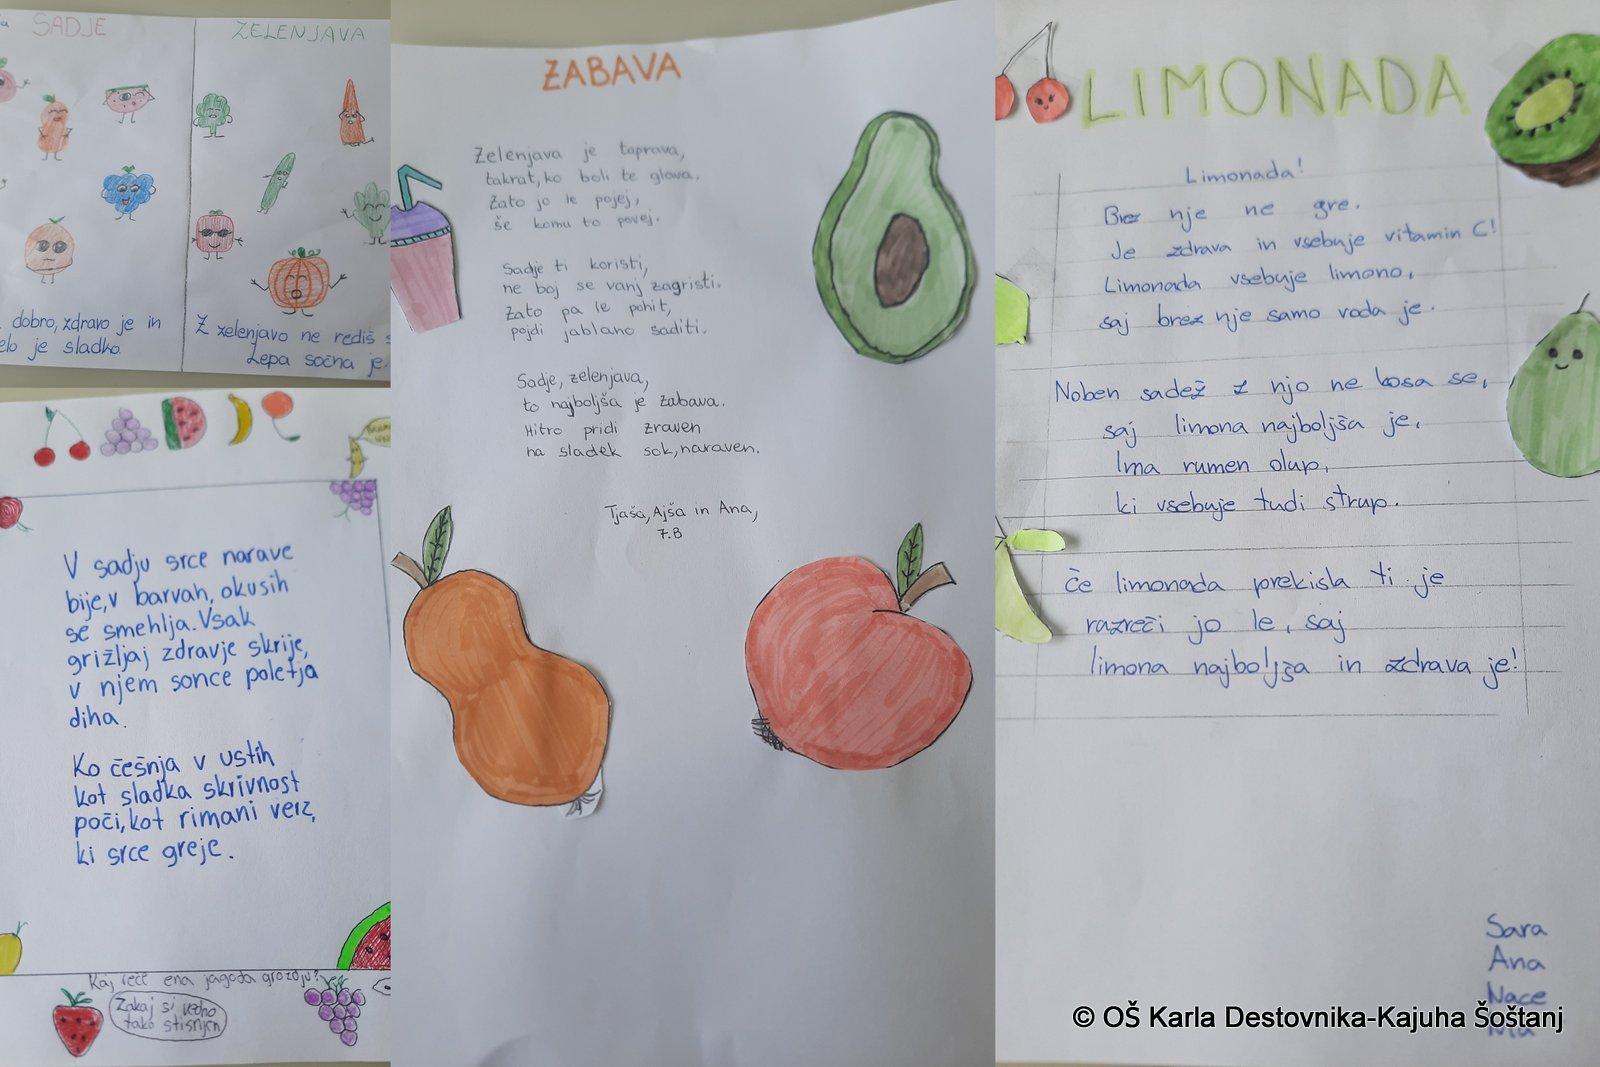 SADJE
ZELENJAVA
dobro, zdravo je in
je sladko.
Z zelenjavo ne rediš
Lepa sočna je.
V sadju srce narave
bije, v barvah, okusih
se smehlja. Vsak
grižljaj zdravje skrije,
v njem sonce poletja
diha.
Ko češnja v ustih
kot sladka skrivnost
poči, kot rimani verz,
ki srce greje.
Kaj reče ena jagoda grozdju?
Zakaj si vedno
tako stisnjen
ZABAVA
Zelenjava je taprava,
takrat, ko boli te glava.
Zato jo le pojej,
še komu to povej.
Sadje ti koristi,
ne boj se vanj zagristi.
Zato pa le pohit,
pojdi jablano saditi.
Sadje, zelenjava,
to najboljša je zabava.
Hitro pridi zraven
na sladek sok, naraven.
Tjaša, Ajša in Ana,
7.B
LIMONADA
Limonada!
Brez nje ne gre.
Je zdrava in vsebuje vitamin C!
Limonada vsebuje limono,
saj brez nje samo voda je.
Noben sadež z njo ne kosa se,
saj limona najboljša je,
Ima rumen olup,
ki vsebuje tudi strup.
Če limonada prekisla ti je
razreči jo le, saj
limona najboljša in zdrava je!
Sara
Ana
Nace
© OŠ Karla Destovnika-Kajuha Šoštanj